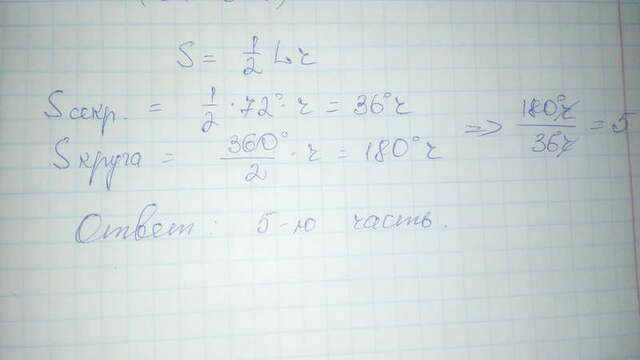 S = 1/2 L r
Sсекр. = 1/2 · 72° · r = 36° r
Sкруга = 360°/2 · r = 180° r => 180° r / 36 r = 5
Ответ: 5-ю часть.